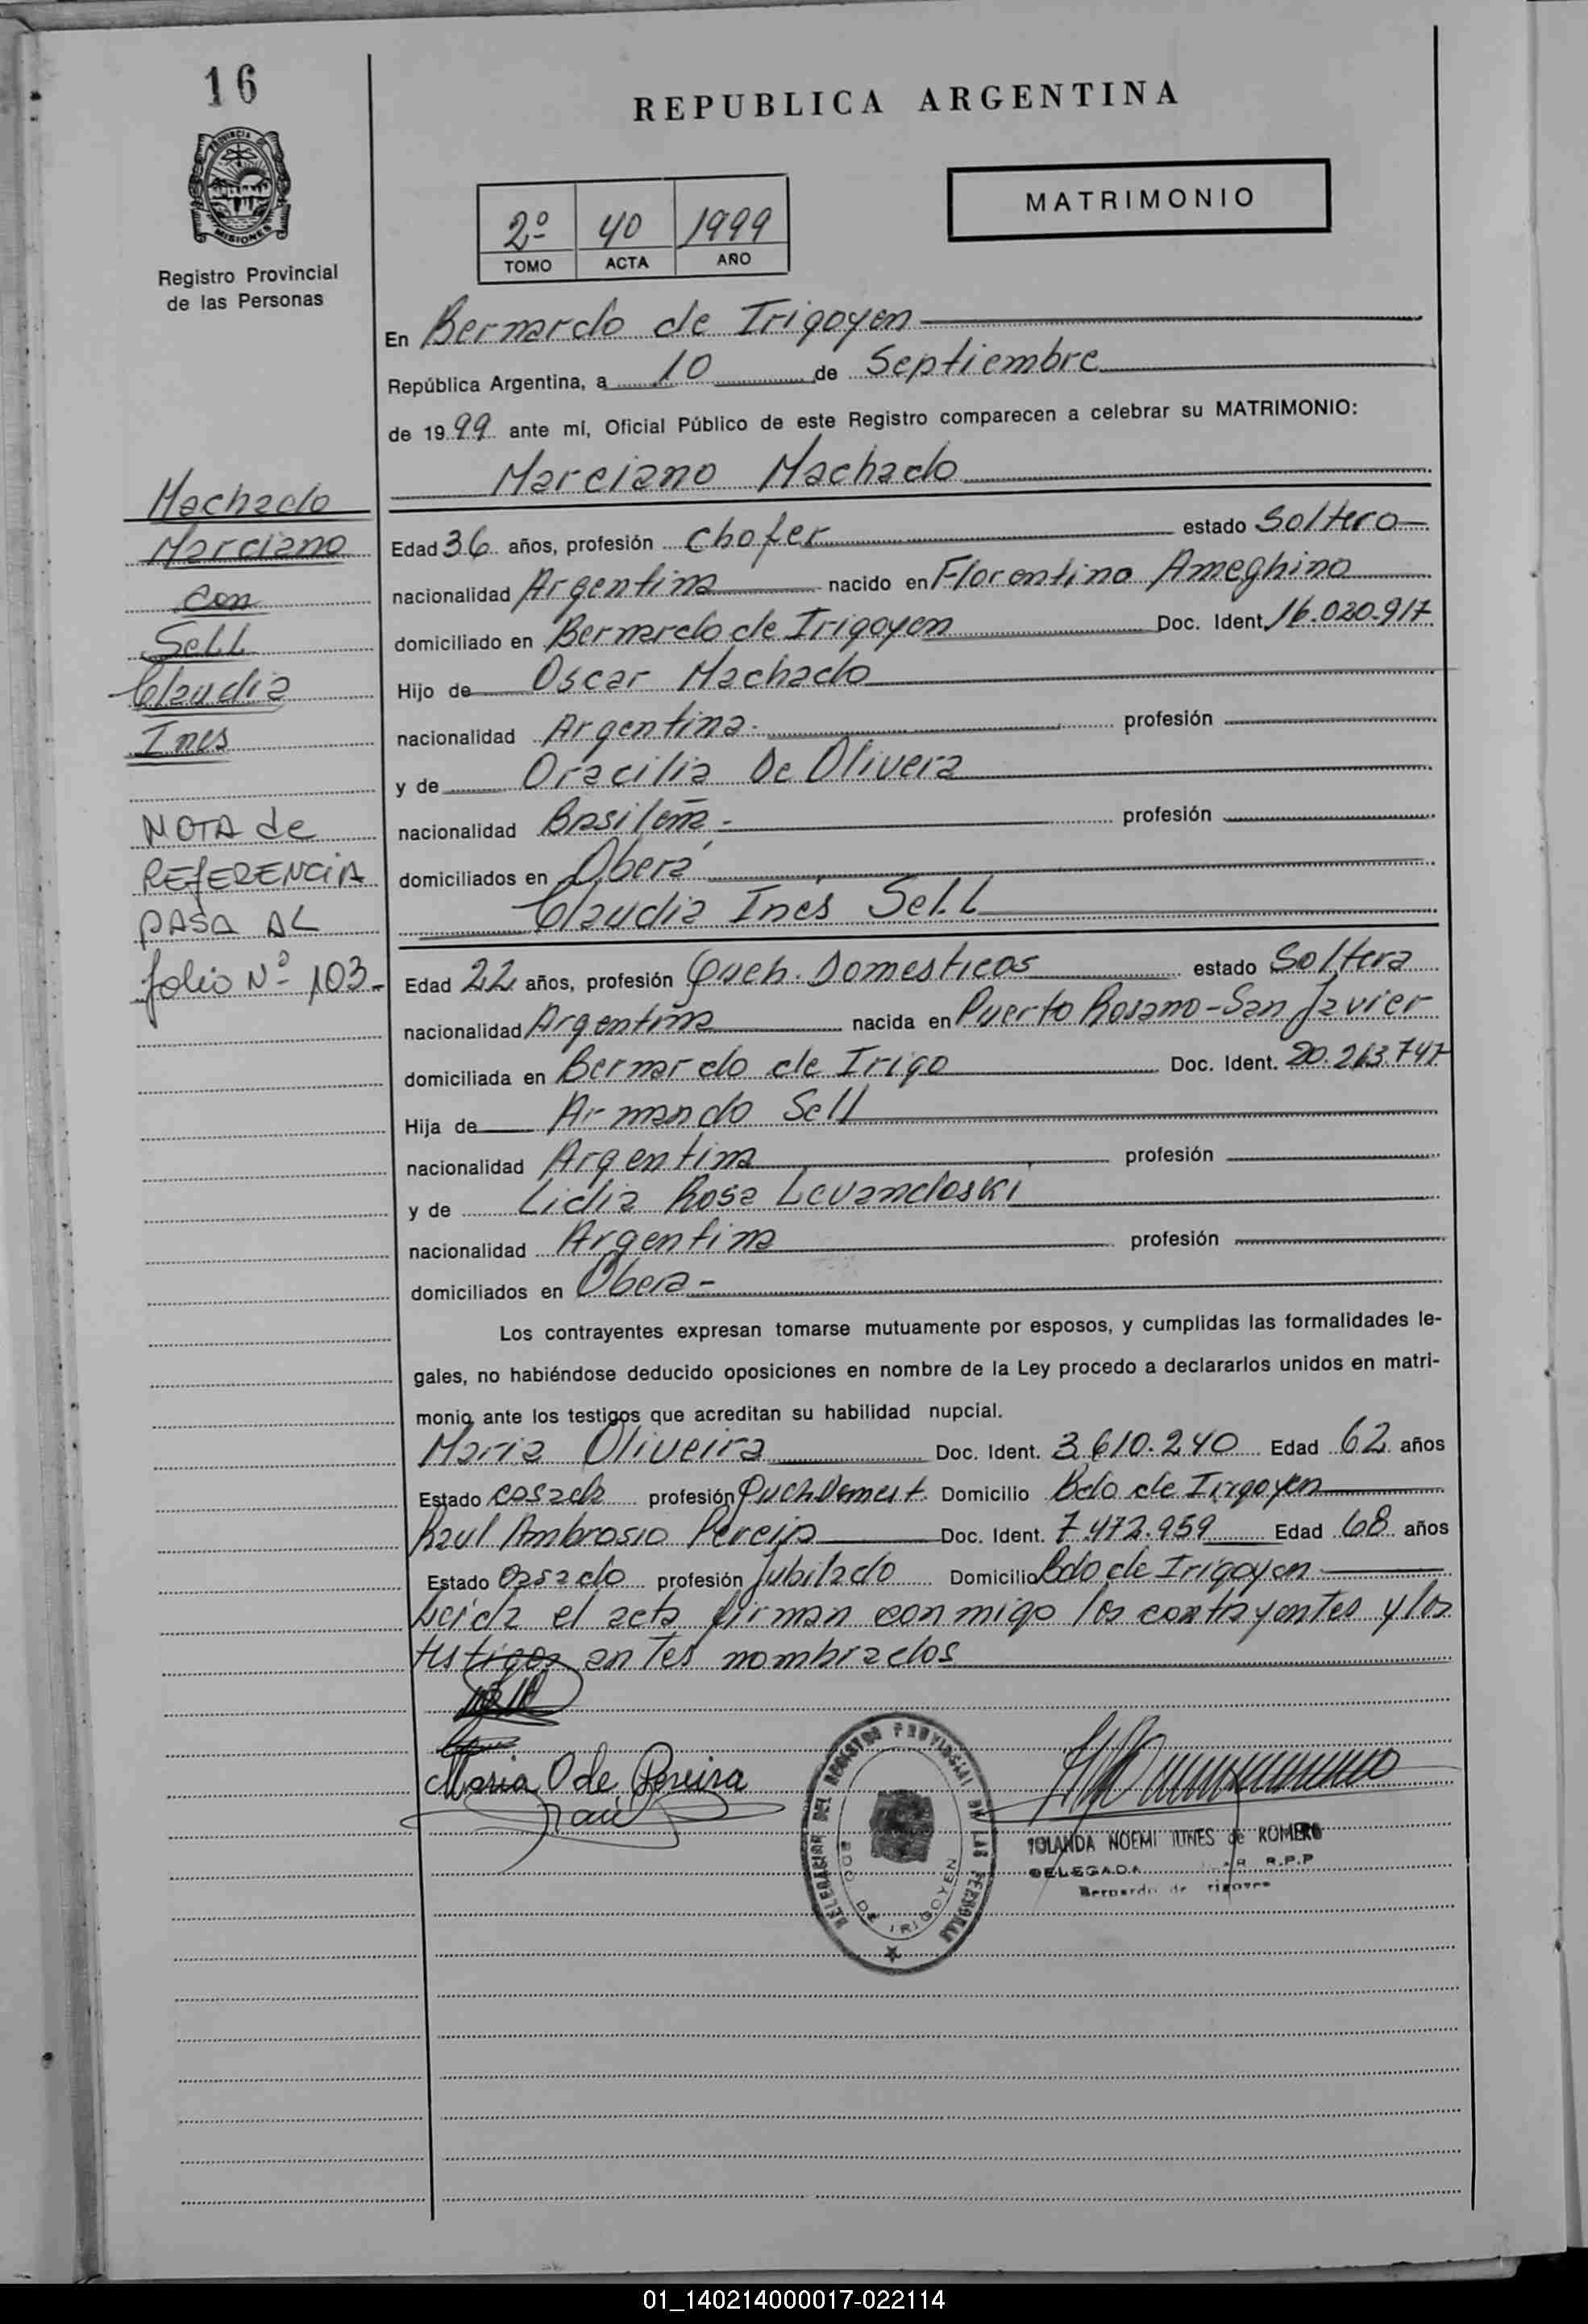 16
REPUBLICA ARGENTINA
PROVINCIA
MISIONES
Registro Provincial
de las Personas
2º 40 1999
TOMO ACTA AÑO
MATRIMONIO
En Bernardo de Irigoyen
República Argentina, a 10 de Septiembre
de 1999 ante mí, Oficial Público de este Registro comparecen a celebrar su MATRIMONIO:
Marciano Machado
Machado
Marciano
con
Sell
Claudia
Ines
NOTA de
REFERENCIA
PASA AL
folio Nº 103-
Edad 36 años, profesión Chofer estado Soltero
nacionalidad Argentina nacido en Florentino Ameghino
domiciliado en Bernardo de Irigoyen Doc. Ident. 16.020.917
Hijo de Oscar Machado
nacionalidad Argentina profesión
y de Oracilia De Olivera
nacionalidad Brasileña- profesión
domiciliados en Oberá
Claudia Inés Sell
Edad 22 años, profesión Queh. Domesticos estado Soltera
nacionalidad Argentina nacida en Puerto Rosario-San Javier
domiciliada en Bernardo de Irigo Doc. Ident. 20.263.747
Hija de Armando Sell
nacionalidad Argentina profesión
y de Lidia Rosa Levandoski
nacionalidad Argentina profesión
domiciliados en Obera-
Los contrayentes expresan tomarse mutuamente por esposos, y cumplidas las formalidades le-
gales, no habiéndose deducido oposiciones en nombre de la Ley procedo a declararlos unidos en matri-
monio ante los testigos que acreditan su habilidad nupcial.
Maria Oliveira Doc. Ident. 3.610.240 Edad 62 años
Estado casada profesión Domicilio Bdo de Irigoyen
Raul Ambrosio Pereira Doc. Ident. 7.472.959 Edad 68 años
Estado Casado profesión Jubilado Domicilio Bdo de Irigoyen
Leida el acta firman conmigo los contrayentes y los
testigos antes nombrados
Maria O de Pereira
DELEGACION DEL REGISTRO PROVINCIAL DE LAS PERSONAS
BDO DE IRIGOYEN
YOLANDA NOEMI de ROMERO
DELEGADA R.P.P
Bernardo de Irigoyen
01_140214000017-022114